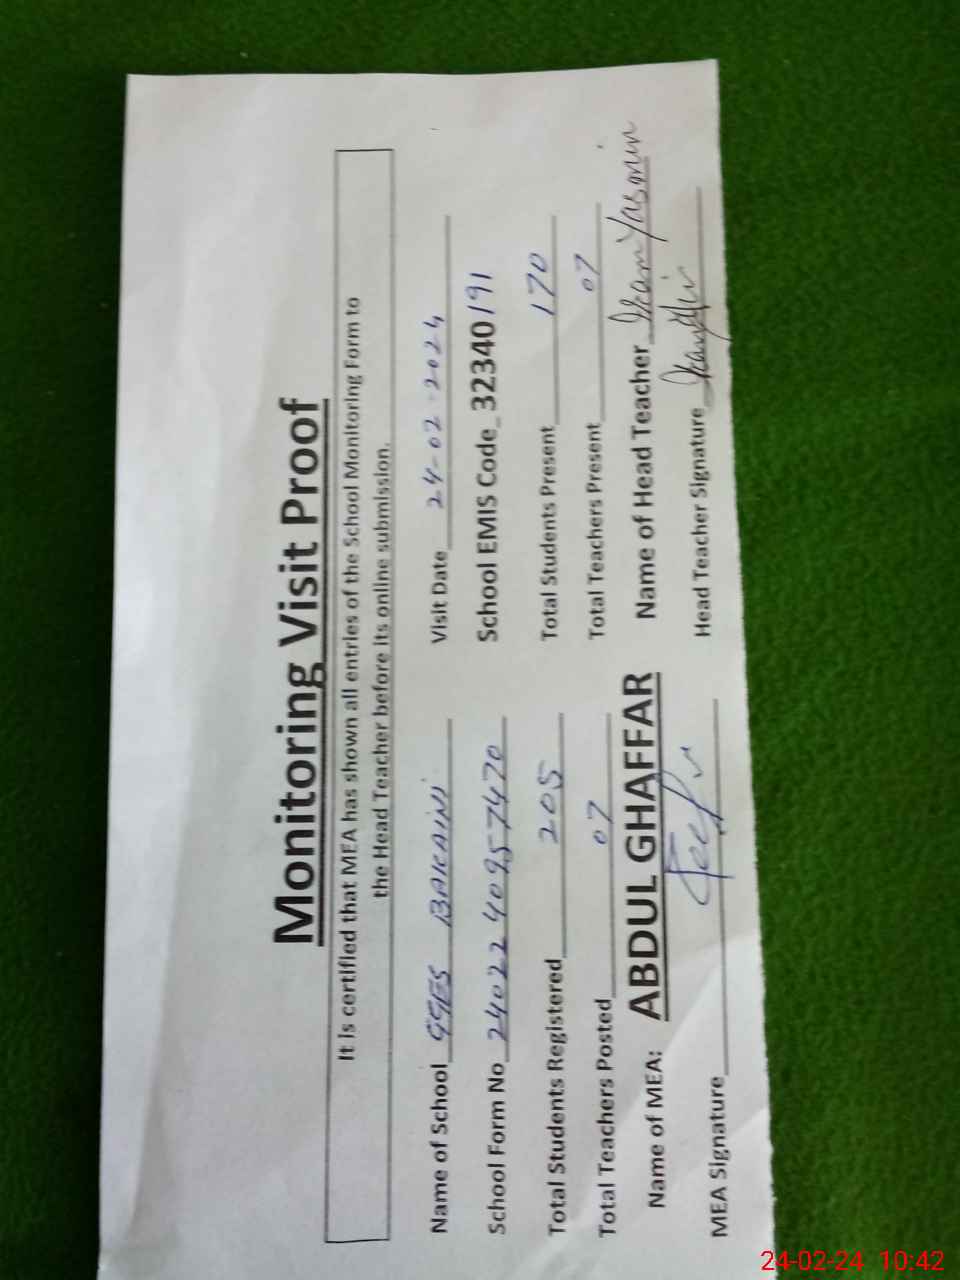 Monitoring Visit Proof
It is certified that MEA has shown all entries of the School Monitoring Form to
the Head Teacher before its online submission.
Name of School GGES BAKAINI Visit Date 24-02-2024
School Form No 240224095 7470 School EMIS Code 32340191
Total Students Registered 205 Total Students Present 170
Total Teachers Posted 07 Total Teachers Present 07
Name of MEA: ABDUL GHAFFAR Name of Head Teacher Yasmin
MEA Signature Head Teacher Signature
24-02-24 10:42